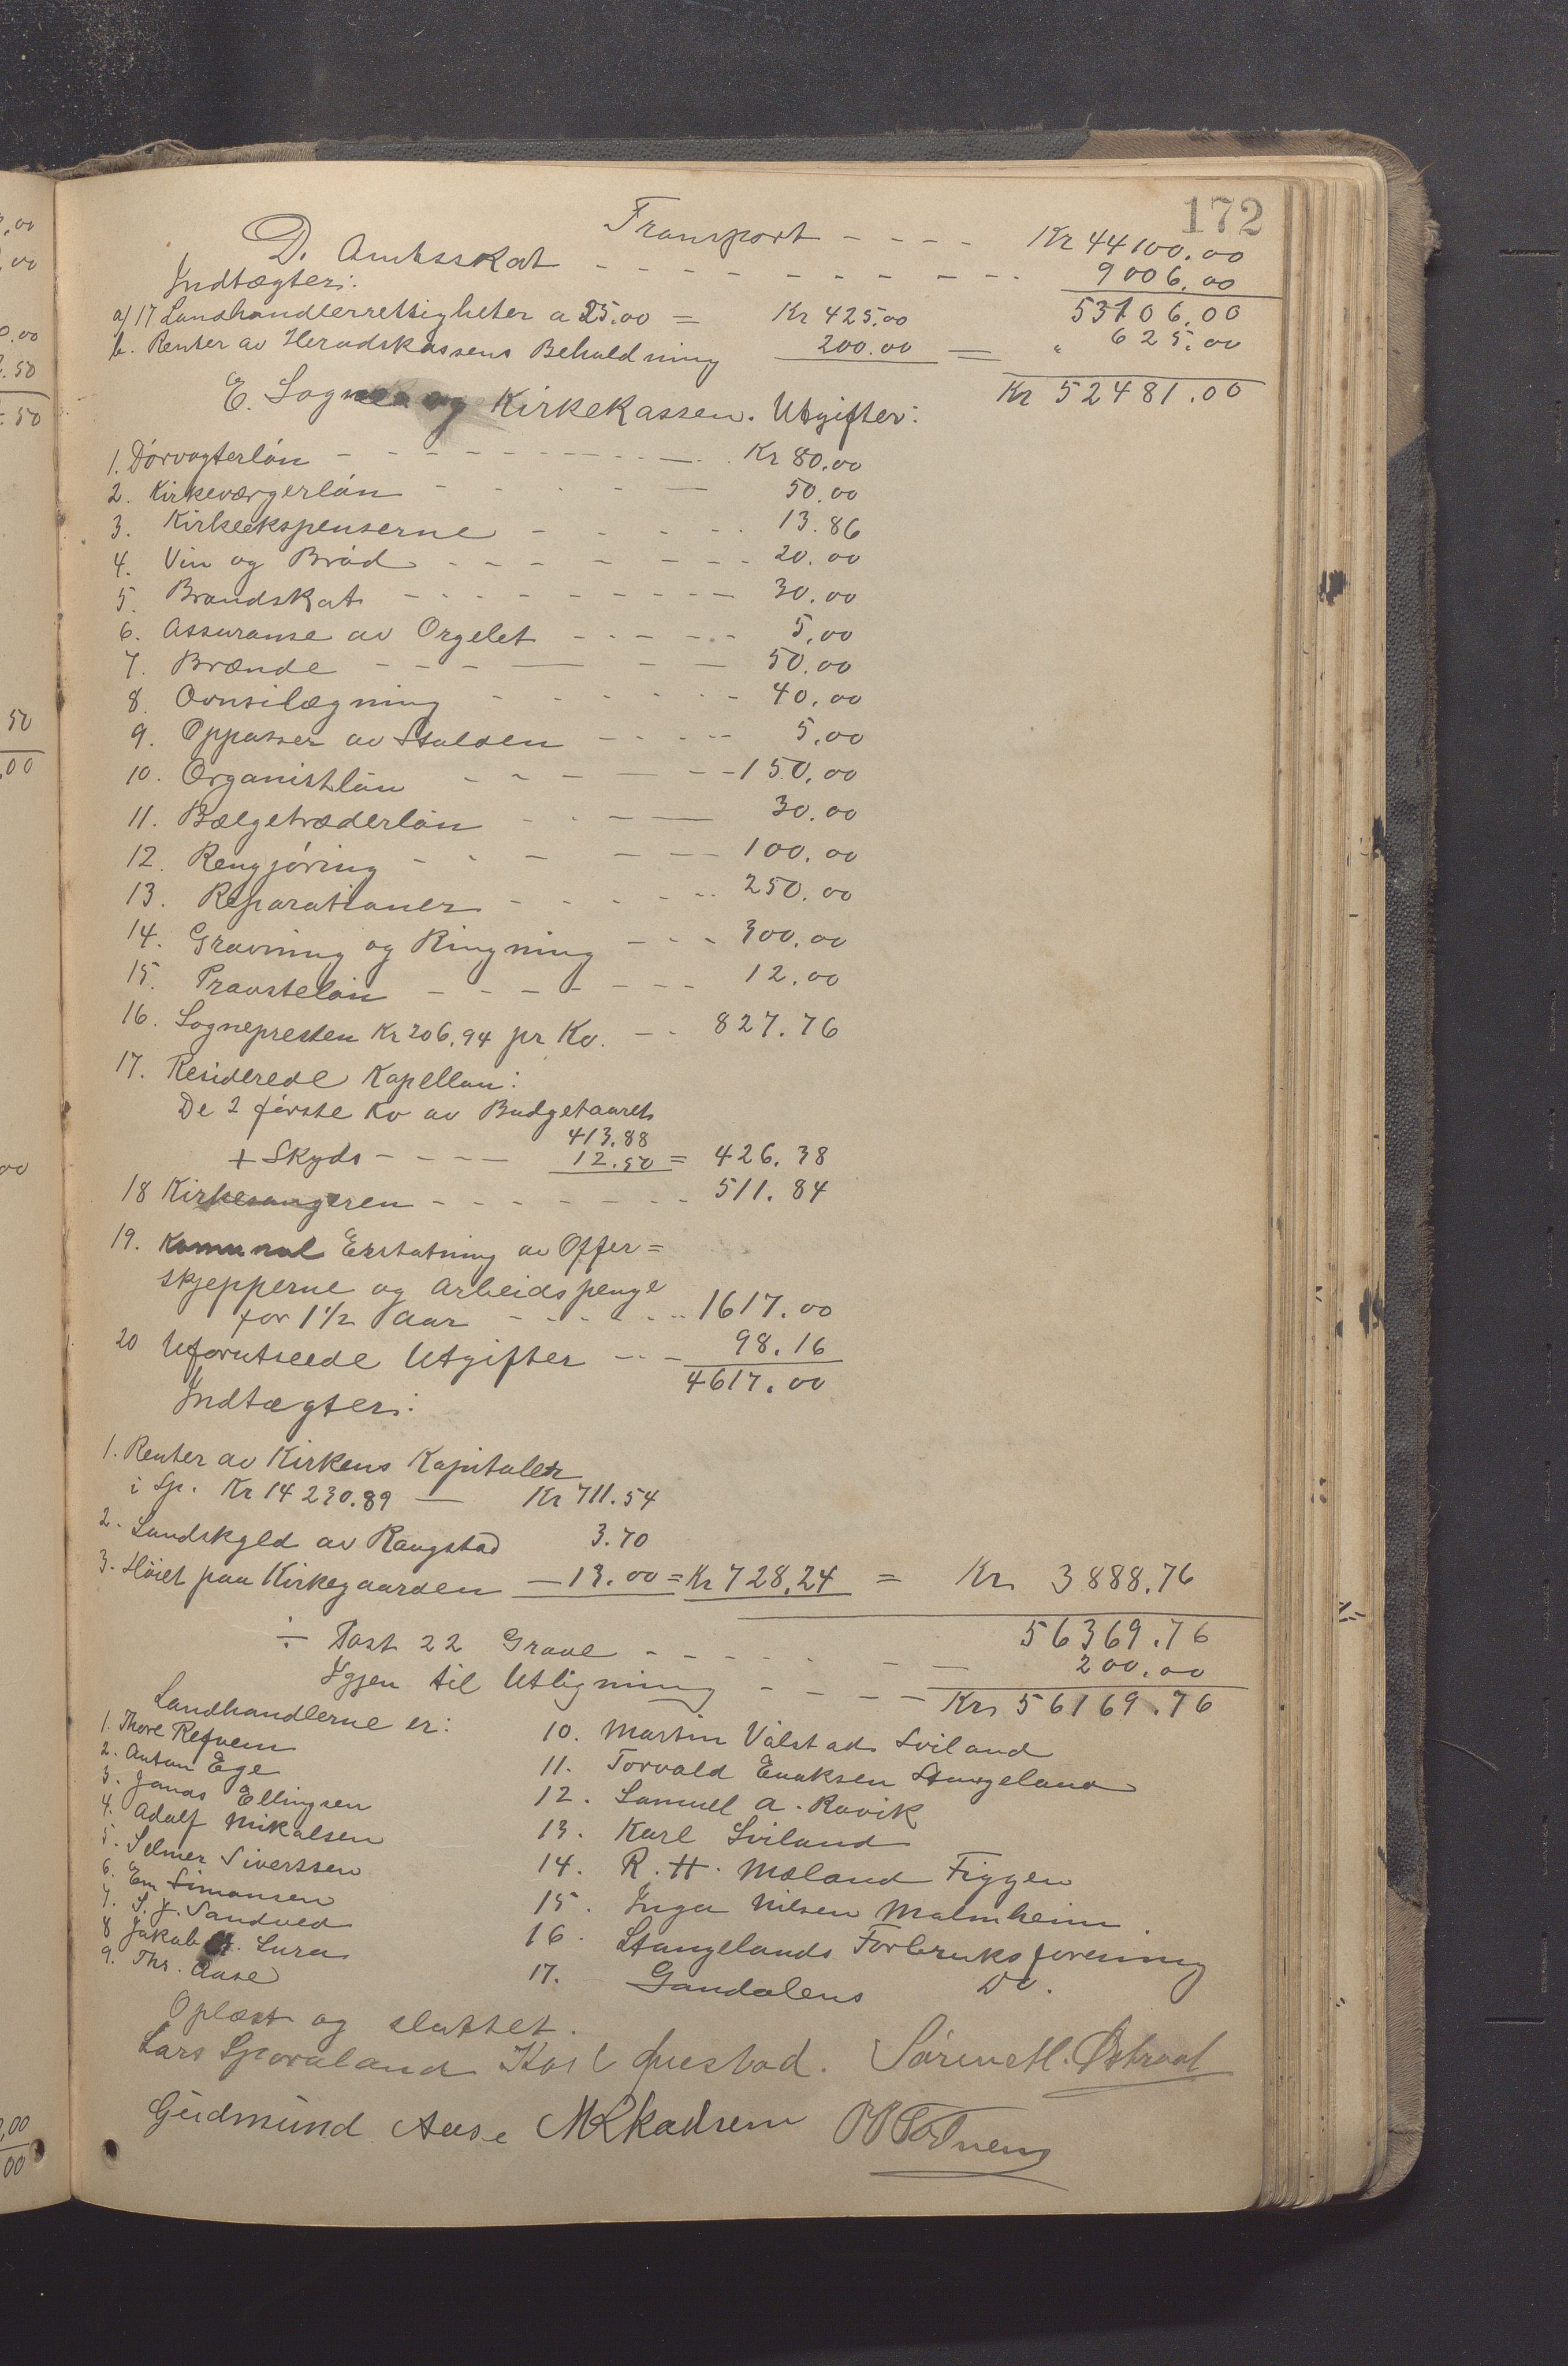 172
Transport - - - - Kr 44100.00
D. Amtsskat - - - - - - - - - 9006.00
Indtægter: 53106.00
a/ 17 Landhandlerrettigheter a 25.00 = Kr 425.00
b. Renter av Heradskassens Beholdning 200.00 = " 625.00
Kr 52481.00
E. Sogne og Kirkekassen. Utgifter:
1. Dørvogterløn - - - - - - - - - Kr 80.00
2. Kirkeværgerløn - - - - - 50.00
3. Kirkeekspenserne - - - - 13.86
4. Vin og Brød - - - - - - - 20.00
5. Brandskat - - - - - - - - 30.00
6. Assuranse av Orgelet - - - - - 5.00
7. Brænde - - - - - - 50.00
8. Ovnsilægning - - - - - - 40.00
9. Oppasser av Stalden - - - - 5.00
10. Organistløn - - - - - - 150.00
11. Bælgetræderløn - - - - 30.00
12. Rengjøring - - - - - 100.00
13. Reparationer - - - - - 250.00
14. Gravning og Ringning - - - 300.00
15. Provsteløn - - - - - - - 12.00
16. Sognepresten Kr 206.94 pr Kv. - - 827.76
17. Residerede Kapellan:
De 2 første Kv av Budgetaaret
413.88
+ Skyds - - - - 12.50 = 426.38
18 Kirkesangeren - - - - - - - 511.84
19. Komunal Erstatning av Offer=
skjepperne og Arbeidspenge
for 1 1/2 Aar - - - - - - 1617.00
20 Uforutseede Utgifter - - - 98.16
4617.00
Indtægter:
1. Renter av Kirkens Kapitaler
i Sp. Kr 14230.89 — Kr 711.54
2. Landskyld av Rangstad 3.70
3. Høiet paa Kirkegaarden — 13.00 = Kr 728.24 = Kr 3888.76
56369.76
÷ Post 22 Grave - - - - - - - 200.00
Igjen til Utligning - - - - Kr 56169.76
Landhandlerne er:
1. Thore Refvem
2. Anton Ege
3. Jonas Ellingsen
4. Adolf Mikalsen
5. Selmer Siverssen
6. Em Simonsen
7. S. J. Sandved
8 Jakob Lura
9. Thr. Aase
10. Martin Válstad Sviland
11. Torvald Enoksen Stangeland
12. Samuel A. Rovik
13. Karl Sviland
14. R. H. Mæland Figgen
15. Inga Nilsen Malmheim.
16. Stangelands Forbruksforening
17. Gandalens Do.
Oplæst og sluttet.
Lars Karl Sørine M. Østraat
Gudmund Aase